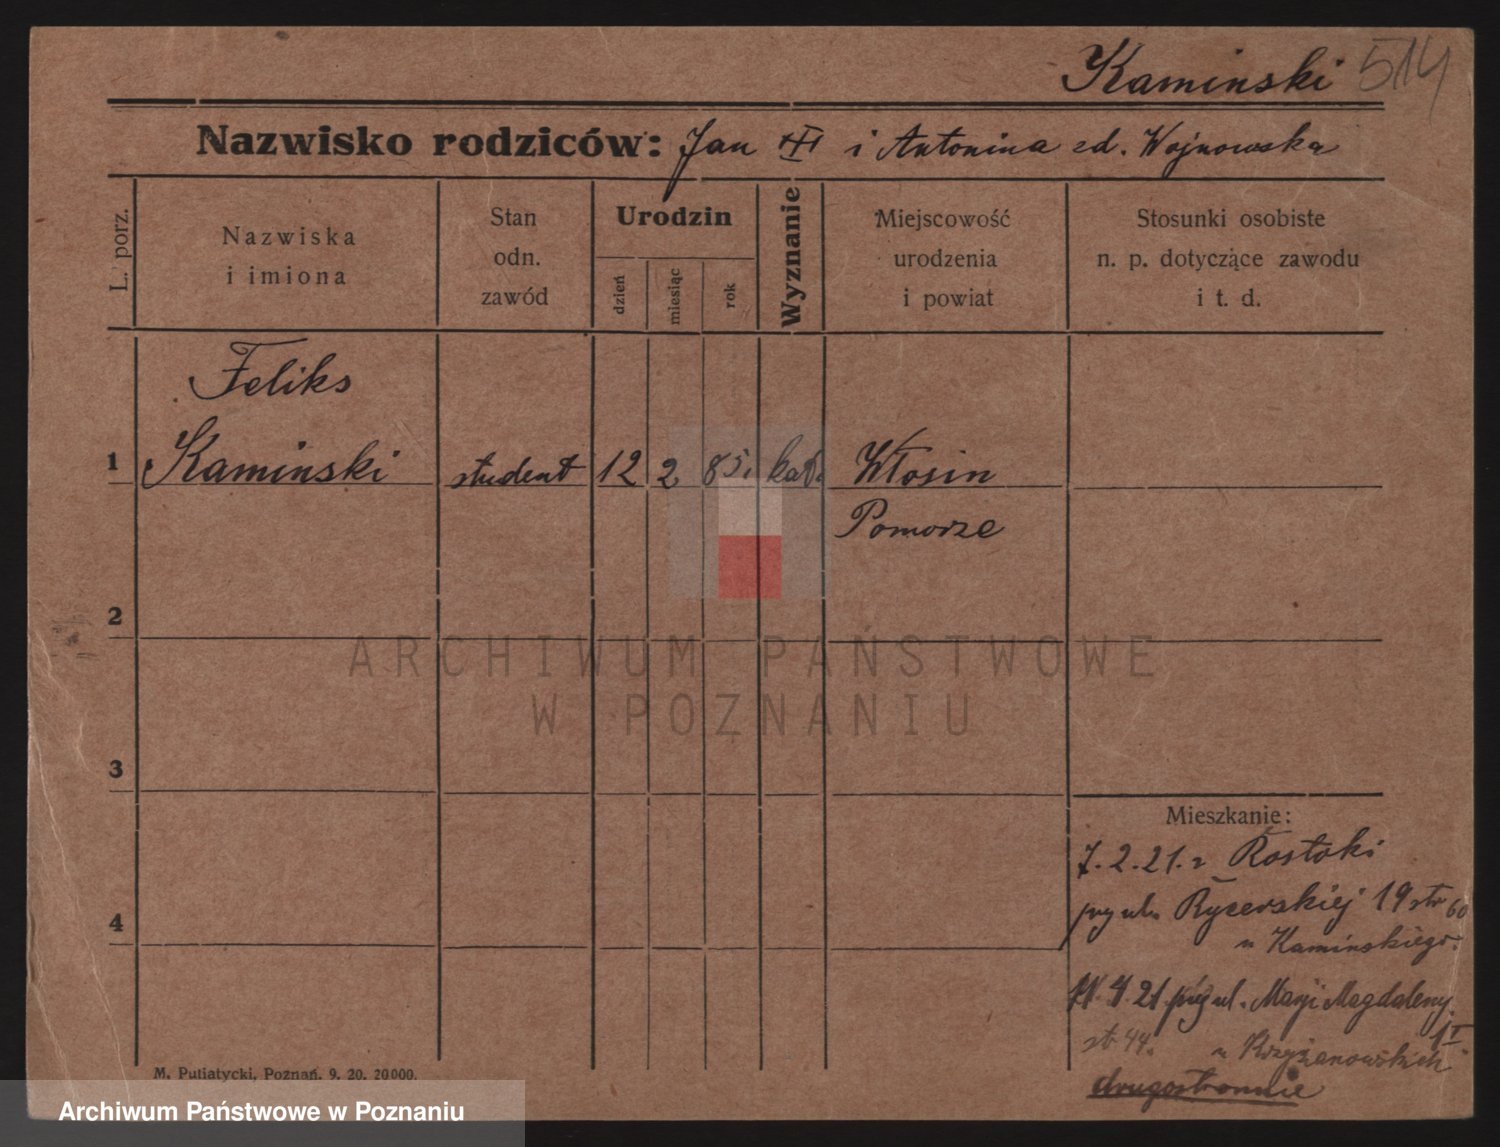 Kaminski 514
Nazwisko rodziców: Jan III i Antonina zd. Wojnowska
L. porz.
Nazwiska
i imiona
Stan
odn.
zawód
Urodzin
dzień
miesiąc
rok
Wyznanie
Miejscowość
urodzenia
i powiat
Stosunki osobiste
n. p. dotyczące zawodu
i t. d.
Feliks
1 Kaminski student 12 2 85. kat. Włosin
Pomorze
2
3
4
ARCHIWUM PAŃSTWOWE
W POZNANIU
Mieszkanie:
7.2.21. z Rostoki
przy ul. Rycerskiej 19 str 60
u Kaminskiego.
11.4.21 przy ul. Maryi Magdaleny
1 I
st. 44. u Krzyżanowskich
drugostronnie
M. Putiatycki, Poznań. 9. 20. 20000.
Archiwum Państwowe w Poznaniu